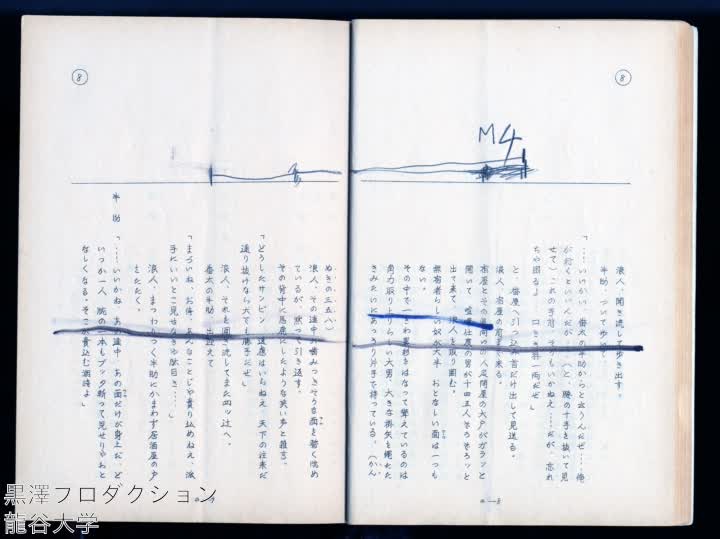 8
8
M4
浪人、聞き流して歩き出す。
半助、ついて歩い
「……いいかい 番太の半助からと云うんだぜ……俺
が行くといいんだが (と、腰の十手を抜いて見
せて) これの手前 そうもいかねえ……だが、忘れ
ちゃ困るよ 口きき料一両だぜ」
と、番屋へ引っ込み首だけ出して見送る。
浪人、宿屋の前まで来る。
開いて、喧嘩仕度の男が十四五人ぞろぞろッと
出て来て、浪人を取り囲む。
無宿者らしい奴が大半 おとなしい面は一つも
ない。
その中で一きわ異彩をはなって聳えているのは
角力取りらしい大男、大きな掛矢を
きみたいにあっさり片手で持っている。(かん
ぬきの三五八)
浪人、その連中の噛みつきそうな面を軽く眺め
ているが、黙って引き返す。
その背中に馬鹿にしたような笑い声と雑言。
「どうしたサンピン 遠慮はいらねえ 天下の往来だ
通り抜けなら犬でも勝手だぜ」
浪人、それも聞き流してまた四ッ辻へ。
番太の半助、出迎えて
「まずいね、お侍、あんなことじゃ売り込めねえ、派
手にいいとこ見せなきや駄目さ……」
浪人、まつわりつく半助にかまわず居酒屋の戸
をたたく。
半助 「……いいかね あの連中 あの面だけが身上だ、ど
いつか一人 腕の一本もブッタ斬って見せりやおと
なしくなる。そこが売込む潮時よ」
a—8
黒澤プロダクション
龍谷大学